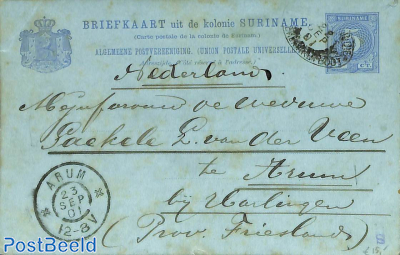 BRIEFKAART uit de kolonie SURINAME.
(Carte postale de la colonie de Suriname.)
ALGEMEENE POSTVEREENIGING. (UNION POSTALE UNIVERSELLE)
SURINAME
CT.
Nederland
Mejufvrouw de weduwe
L. van der Veen
te Arum
bij Harlingen
(Prov. Friesland)
ARUM
23
SEP
01
12-8V
PostBeeld